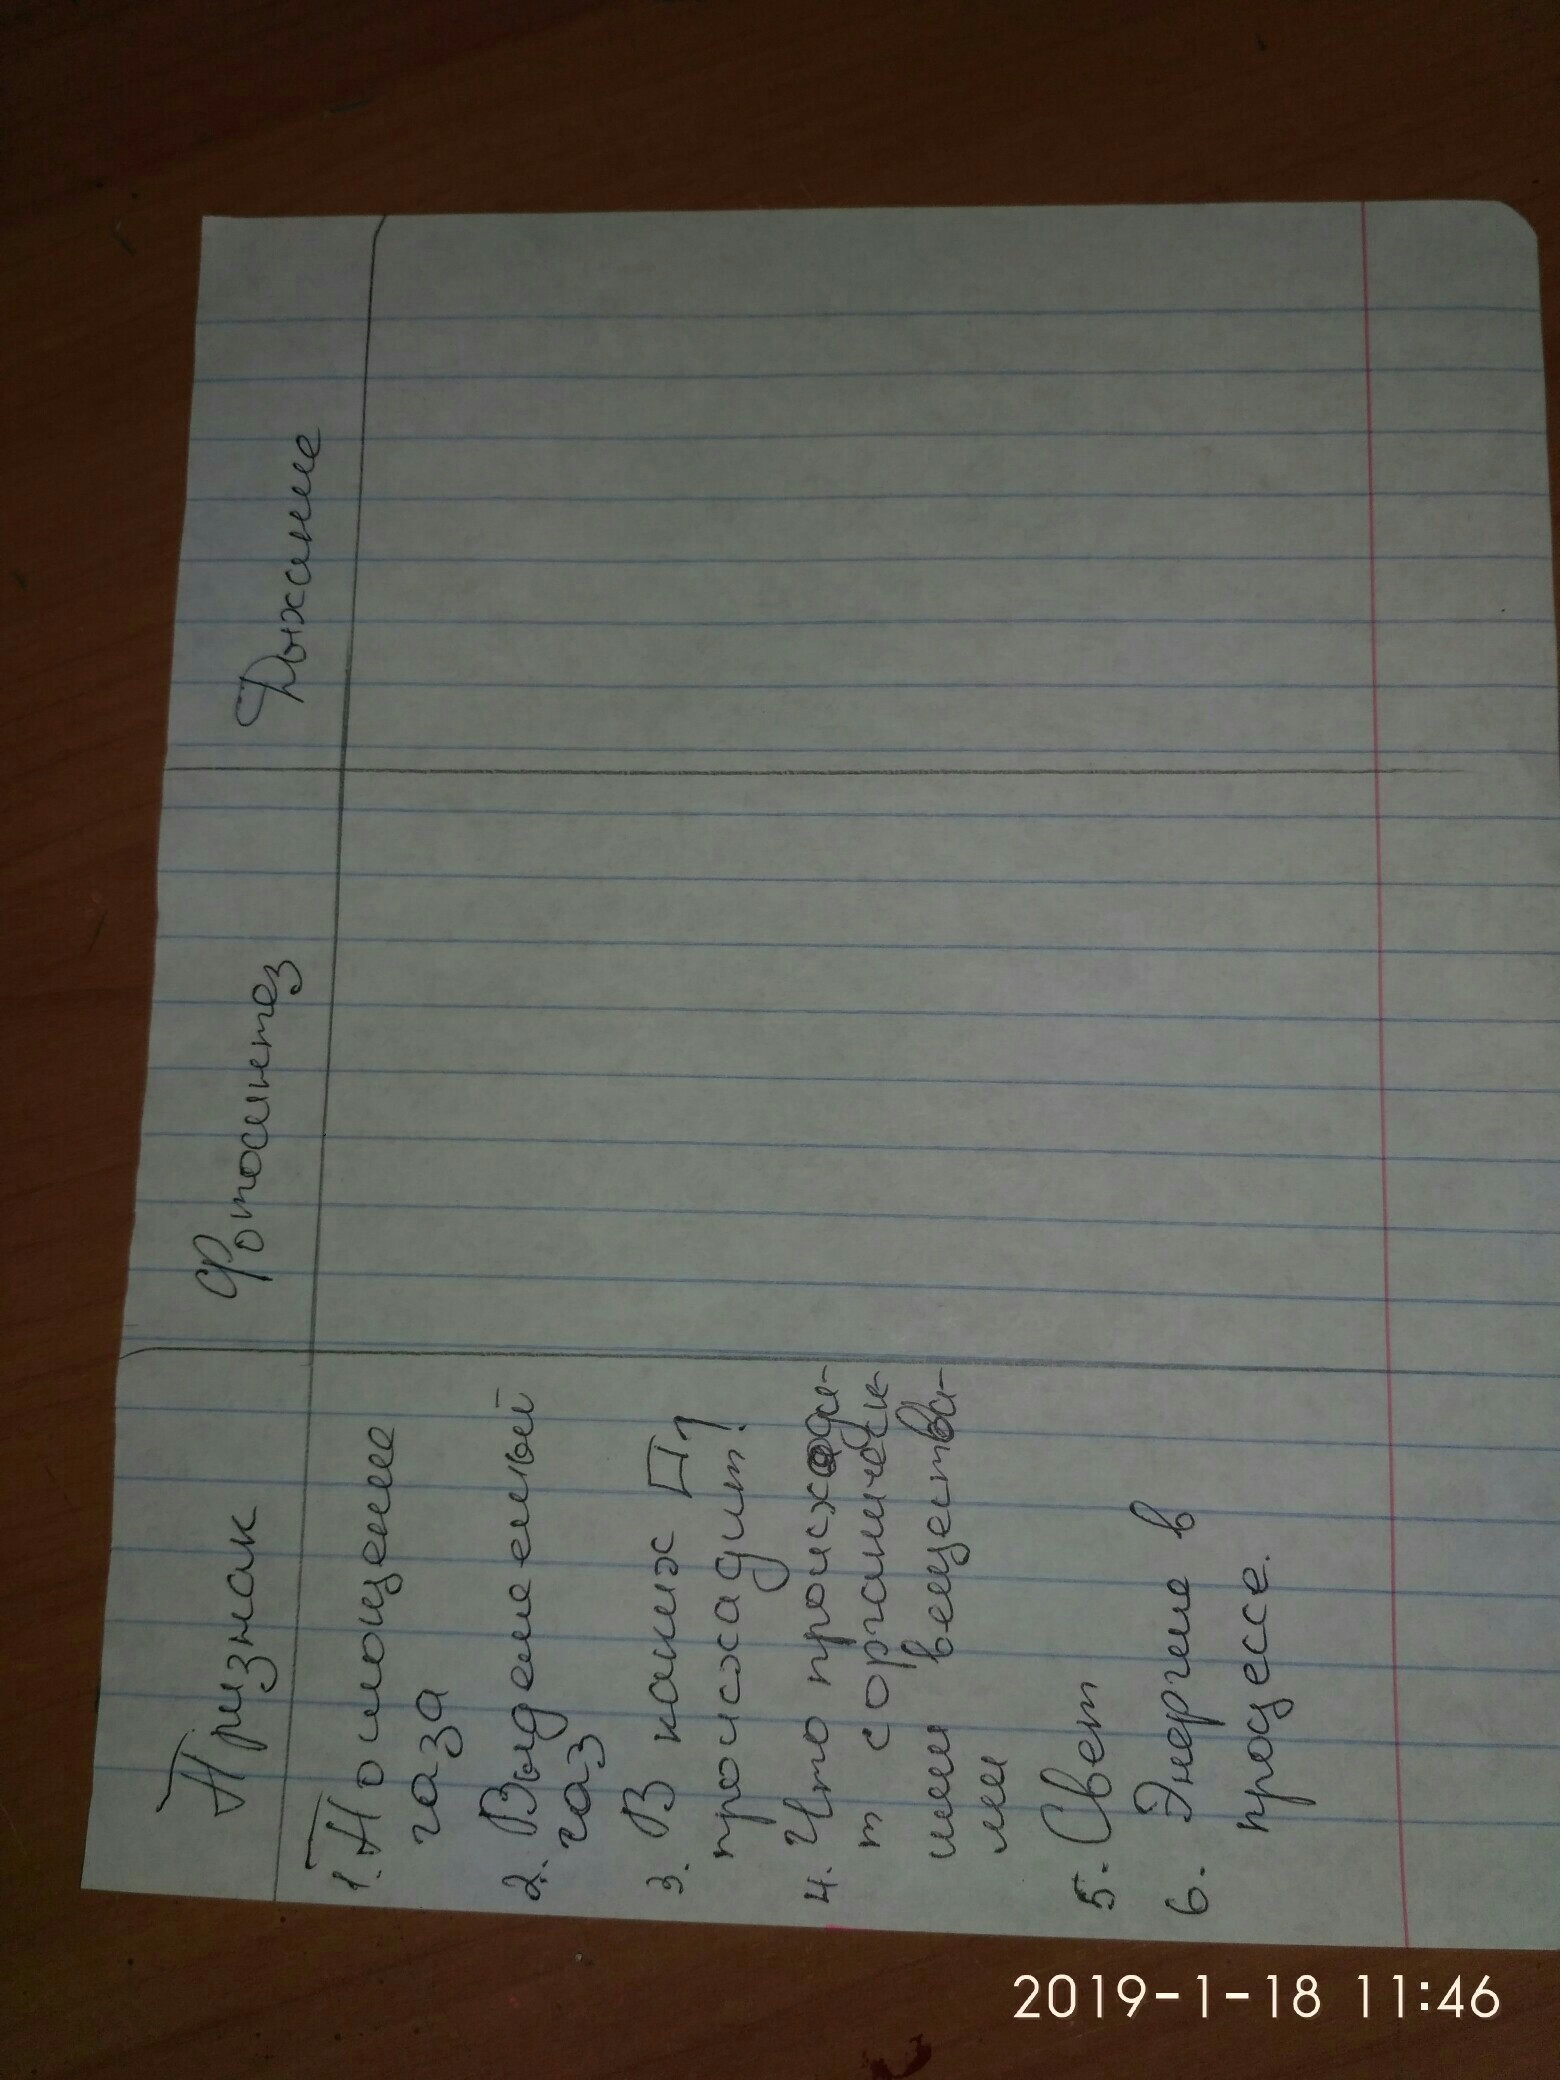 Признак Фотосинтез Дыхание
1. Поглощение
газа
2. Выделеный
газ
3. В каких □,
происхадит?
4. Что происходи-
т с органическ-
ими вещества-
ми
5. Свет
6. Энергие в
процессе.
2019-1-18 11:46